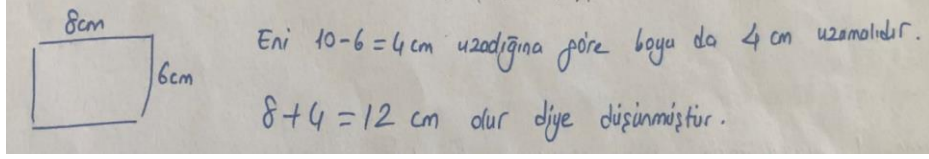 8cm
6cm
Eni 10-6=4cm uzadığına göre boyu da 4 cm uzamalıdır.
8+4=12 cm olur diye düşünmüştür.